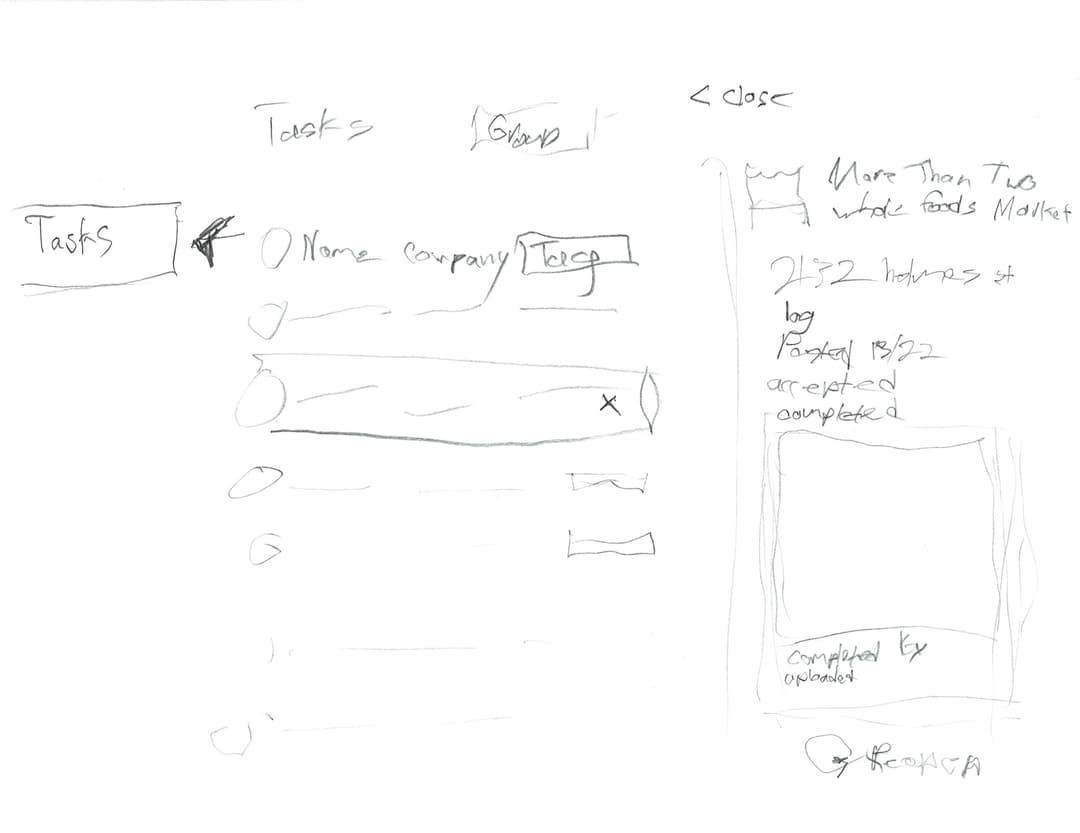 < close
Tasks
Group
Tasks
Name company
More Than Two
whole foods Market
2132 holmes st
log
Posted 13/22
accepted
completed
completed
uploaded